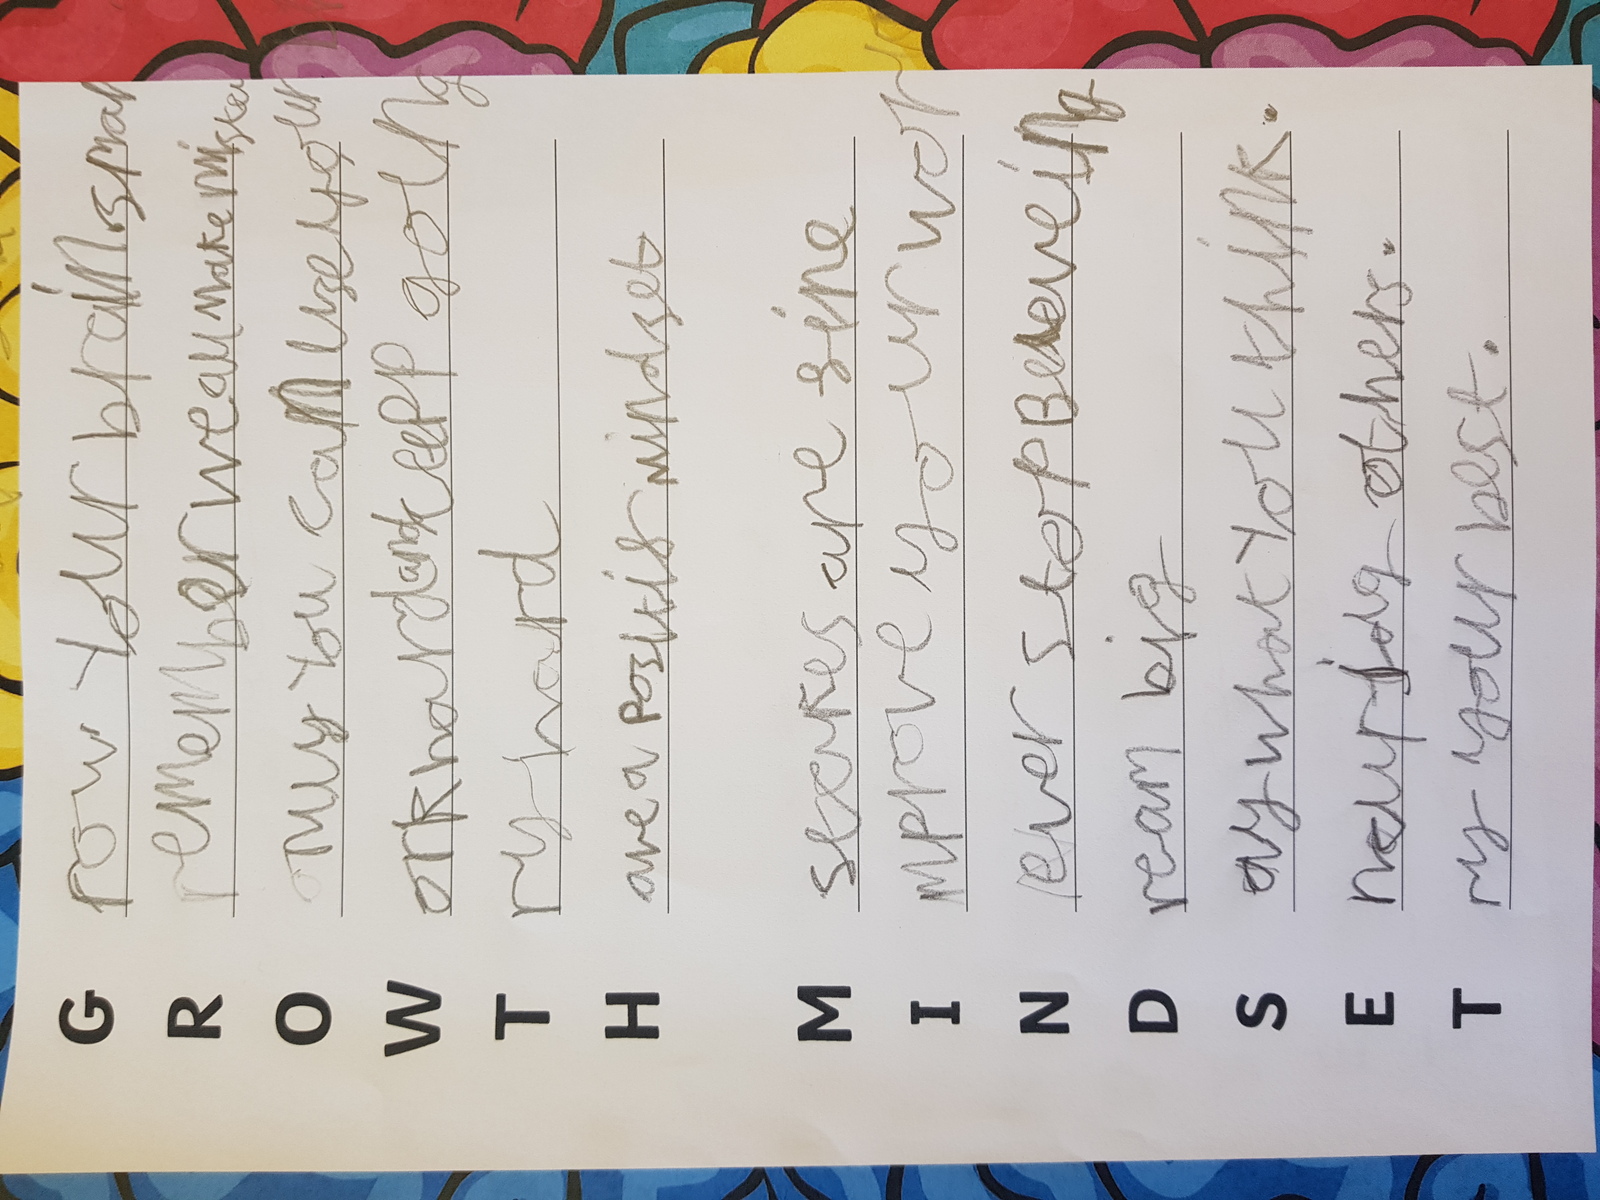 G row your brain smar
R remember we all make misker
O only you can use your
W ork hard and keep going
T ry hard
H ave a positis mindset
M steakes are fine
I mprove your wor
N ever stop Beleveing
D ream big
S ay what you think.
E others.
T ry your best.